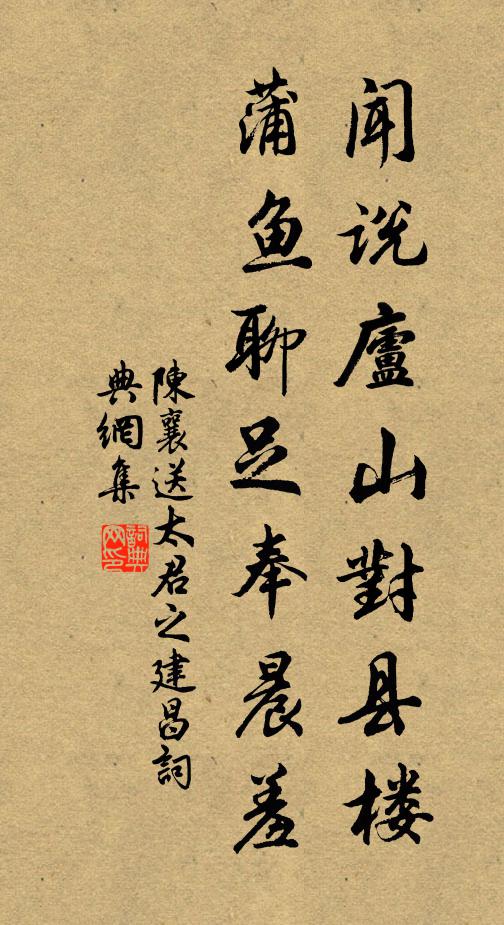 闻说廬山對县楼
蒲鱼聊足奉晨羞
陳襄送太君之建昌詞
典網集
詞典網印